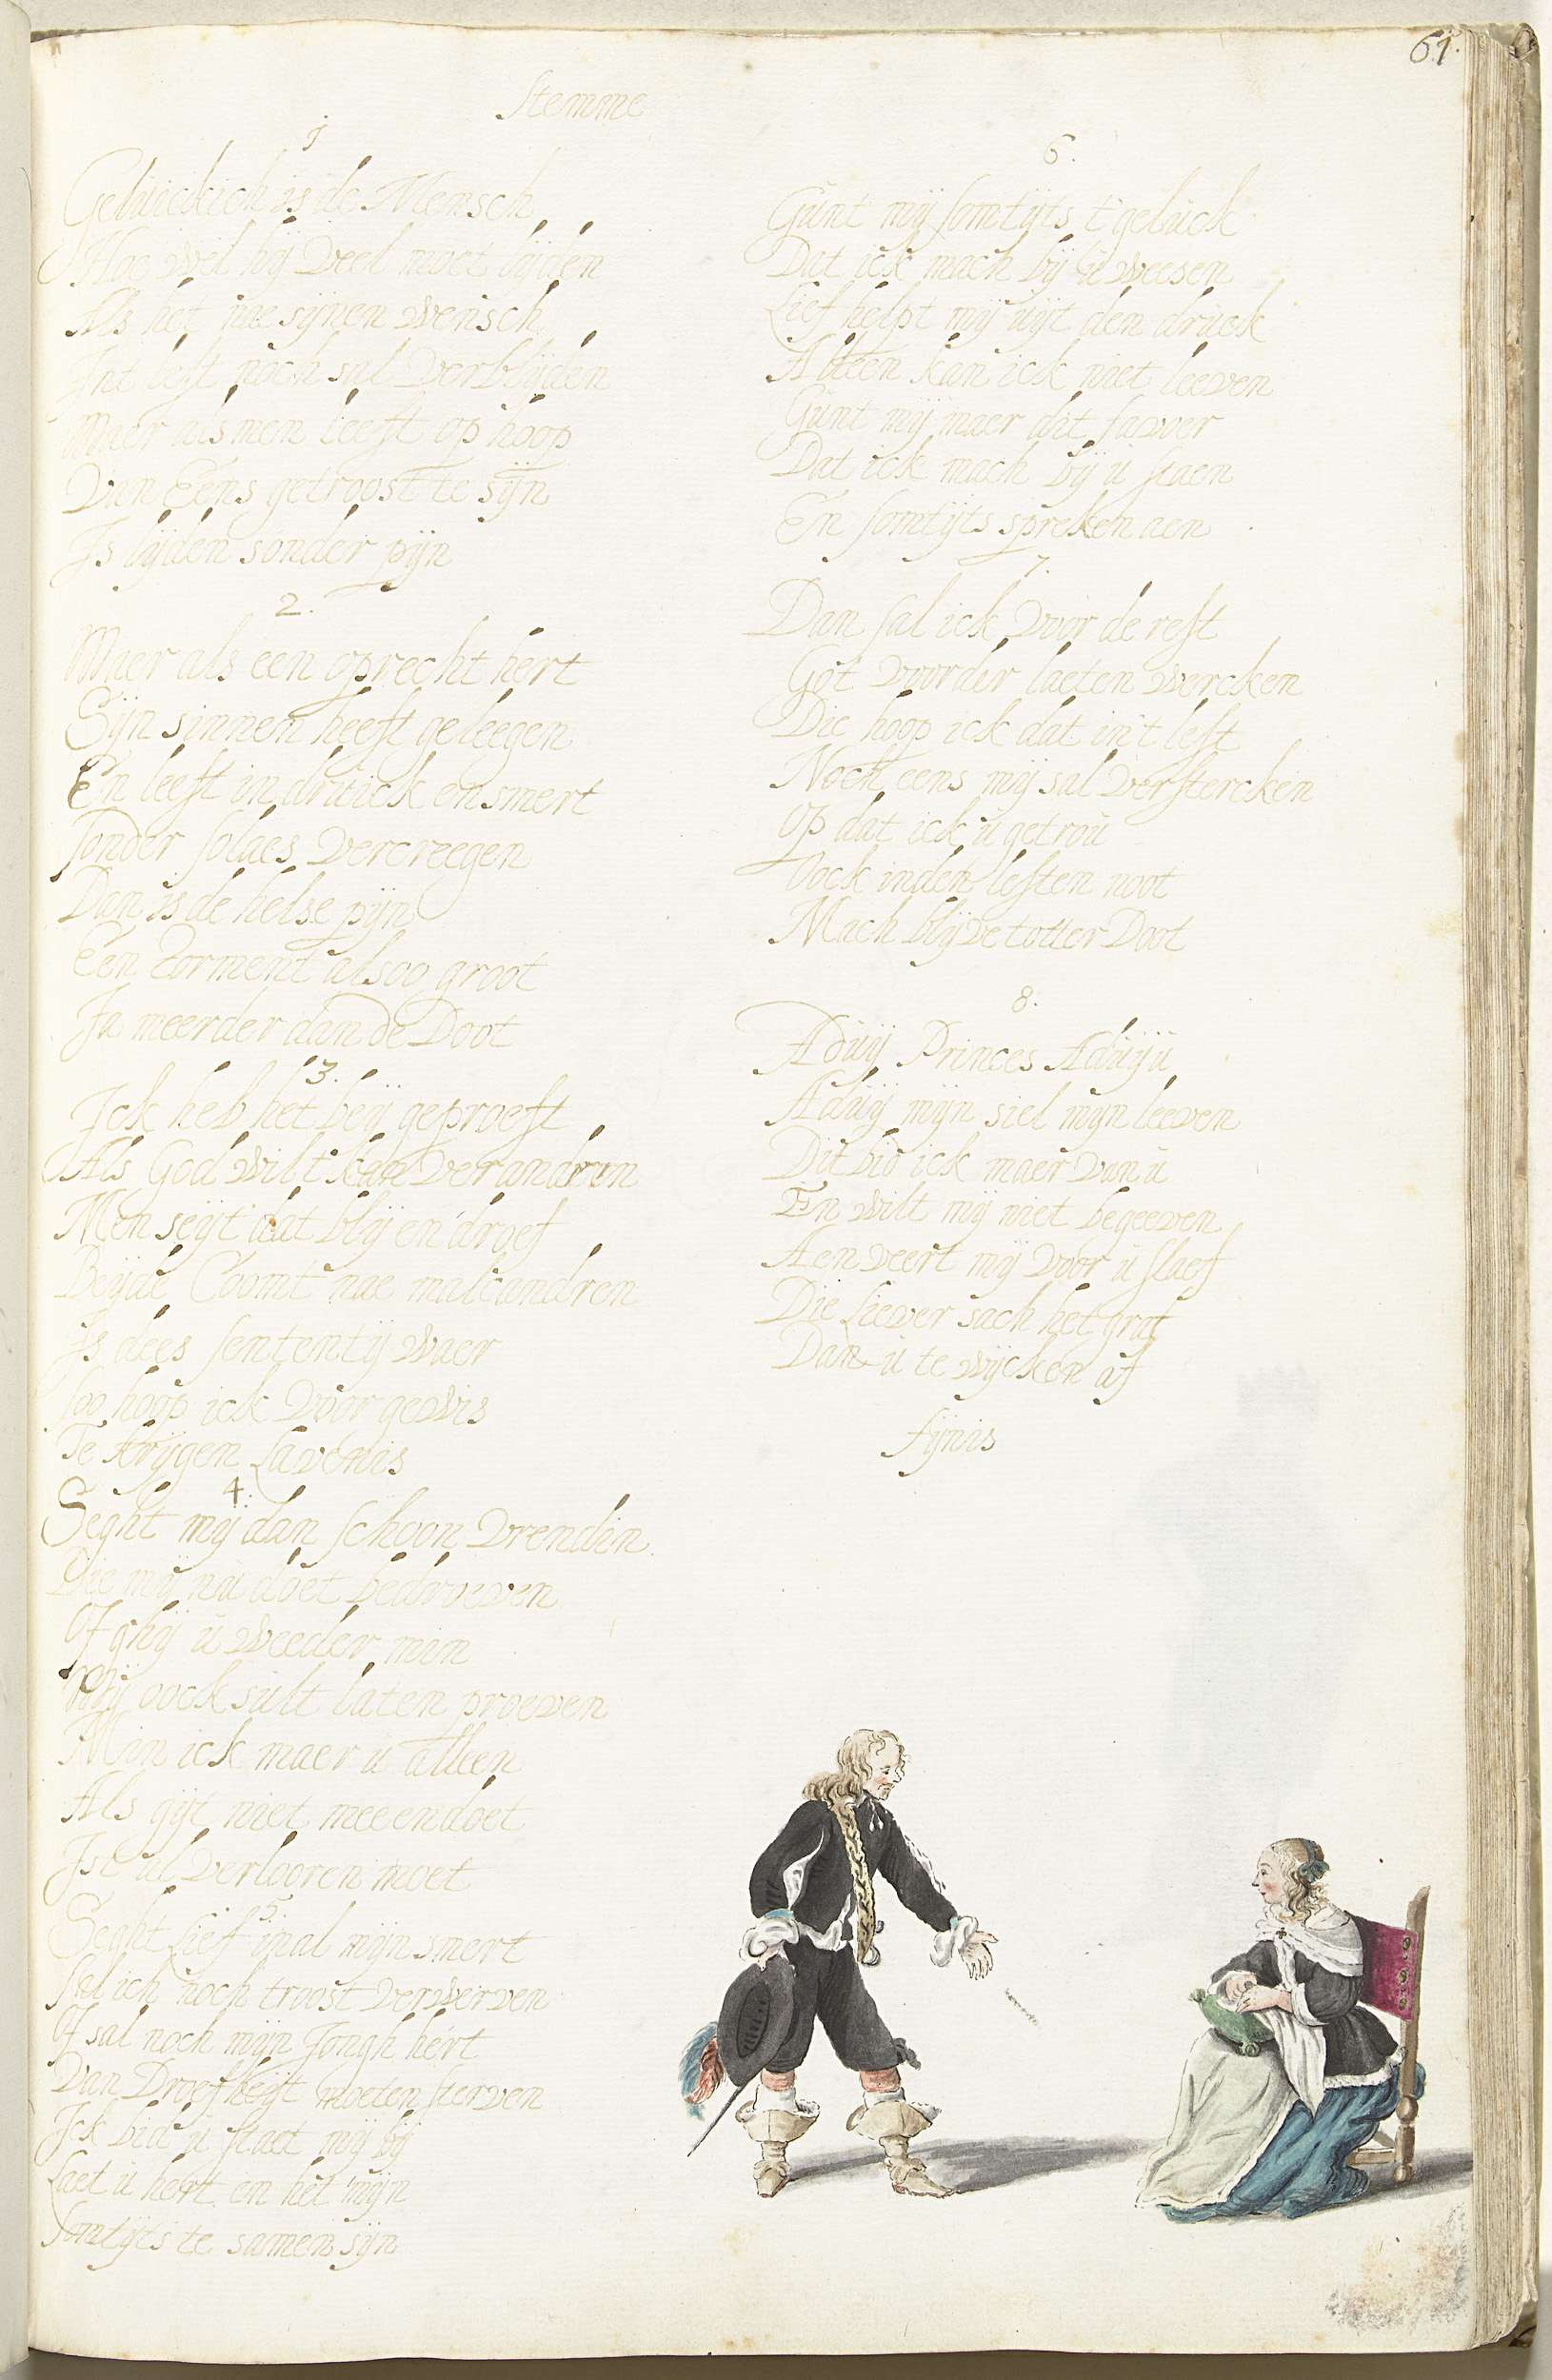 61.
Stemme
1
Geluickich is de Mensch
Hoe wel hij veel moet lijden
Als het nae sijnen wensch
Int lest noch sal verblijden
Maer als men leeft op hoop
Van Eens getroost te sijn
Is lijden sonder pijn
2.
Maer als een oprecht hert
Sijn sinnen heeft geleegen
En leeft in druick en smert
sonder solaes vercreegen
Dan is de helse pijn
Een torment alsoo groot
Ja meerder dan de Doot
3.
Ick heb het beij geproeft
Als God wil t kan verandren
Men seijt dat blij en droef
Beijde Coomt nae malcandren
Is dees sententij waer
soo hoop ick voor gewis
Te krijgen Lavenis
4.
Seght mij dan schoon vrendin
Die mij nu doet bedroeven
Of ghij u weeder min
Mij oock sult laten proeven
Min ick maer u alleen
Als gijt niet mee en doet
Ist al verlooren moet
5.
Seght Lief op al mijn smert
sal ich noch troost verwerven
Of sal noch mijn Jongh hert
Van Droefheijt moeten sterven
Ick bid u staet mij bij
Laet u hert en het mijn
somtijts te samen sijn
6.
Gunt mij somtijts t'geluck
Dat ick mach bij u weesen
Lief helpt mij uijt den druck
Alleen kan ick niet leeven
Gunt mij maer dit faver
Dat ick mach bij u staen
En somtijts spreken aen
7.
Dan sal ick voor de rest
Got voorder laeten wercken
Die hoop ick dat in't lest
Noch eens mij sal verstercken
Op dat ick u getrou
Oock in den lesten noot
Mach blijve totter Doot
8.
Aduij Princes Aduiju
Aduij mijn siel mijn leeven
Dit bid ick maer van u
En wilt mij niet begeeven
Aenveert mij voor u slaef
Die Liever sach het graf
Dan u te wijcken af
fijnis